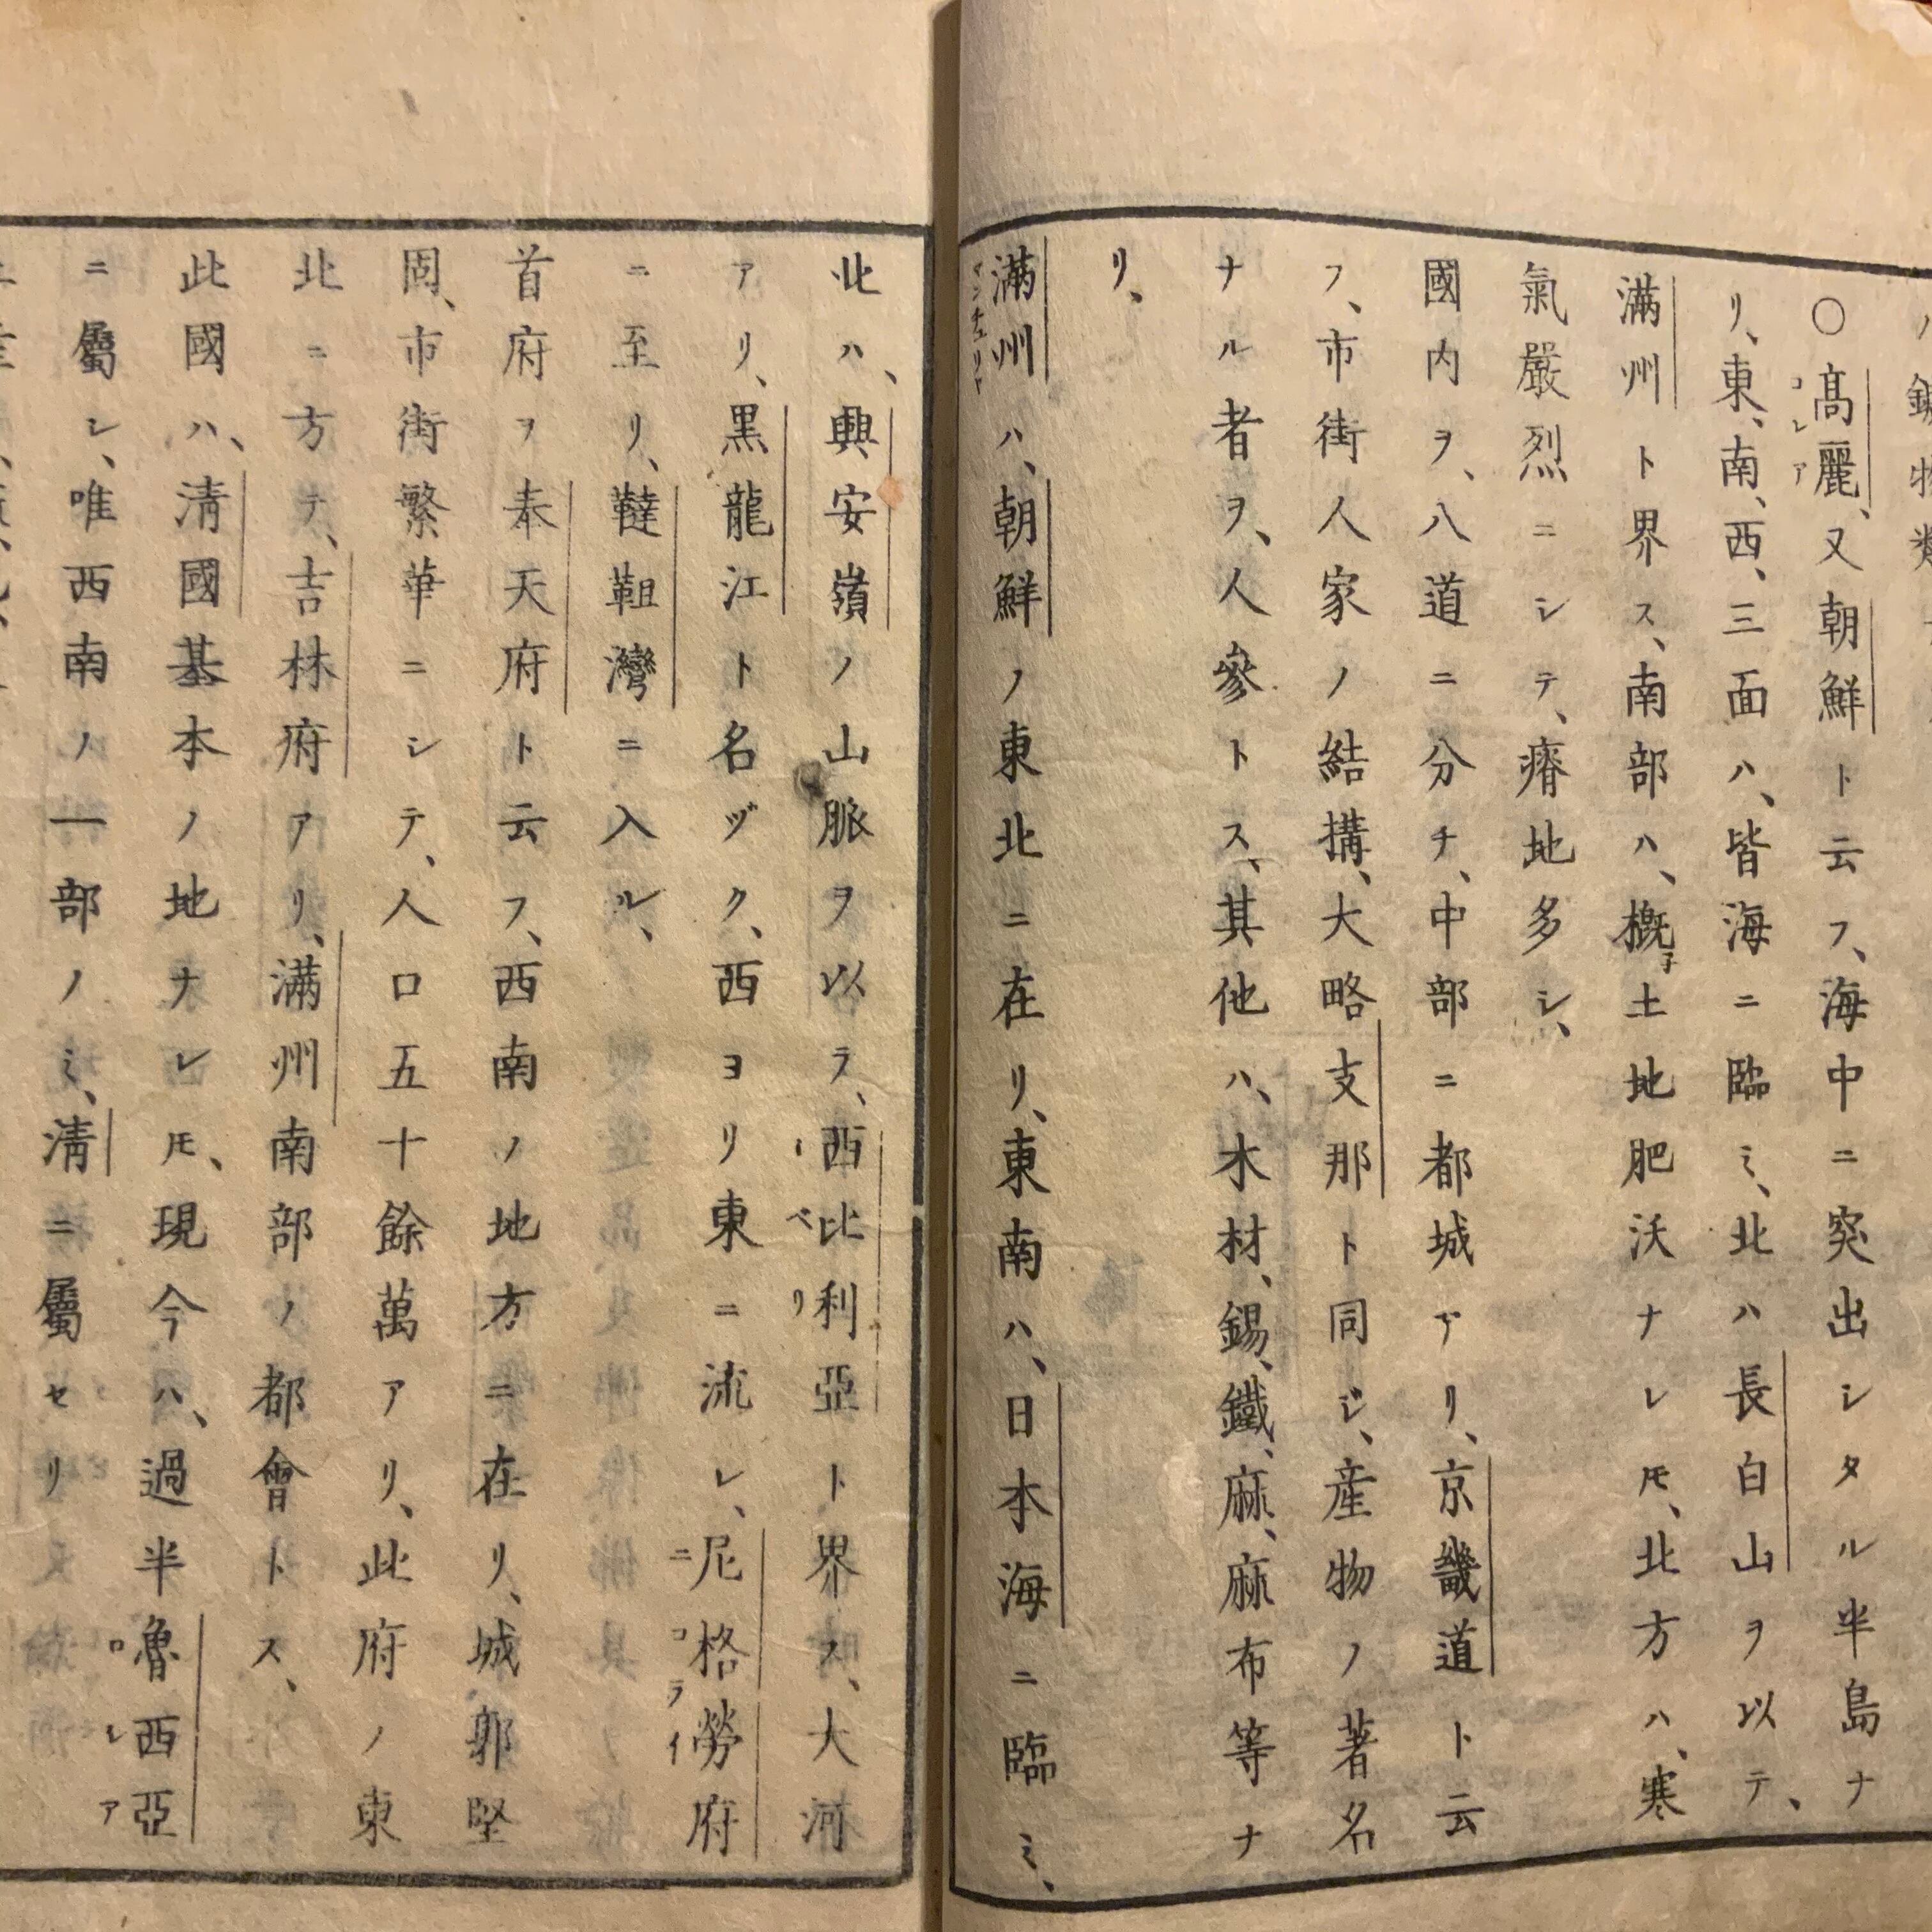 鑛物類
○髙麗、又朝鮮ト云フ、海中ニ突出シタル半島ナ
コレア
リ、東、南、西、三面ハ、皆海ニ臨ミ、北ハ長白山ヲ以テ、
滿州ト界ス、南部ハ、概子土地肥沃ナレ𪜈、北方ハ、寒
氣嚴烈ニシテ、瘠地多シ、
國内ヲ、八道ニ分チ、中部ニ都城アリ、京畿道ト云
フ、市街人家ノ結搆、大略支那ト同ジ、産物ノ著名
ナル者ヲ、人參トス、其他ハ、木材、錫、鐵、麻、麻布等ナ
リ、
滿州ハ、朝鮮ノ東北ニ在リ、東南ハ、日本海ニ臨ミ、
マンチュリヤ
北ハ、興安嶺ノ山脈ヲ以テ、西比利亞ト界ス、大河
ベリ
アリ、黒龍江ト名ヅク、西ヨリ東ニ流レ、尼格勞府
ニコライ
ニ至リ、韃靼灣ニ入ル、
首府ヲ奉天府ト云フ、西南ノ地方ニ在リ、城郭堅
固、市街繁華ニシテ、人口五十餘萬アリ、此府ノ東
北ニ方テ、吉林府アリ、滿州南部ノ都會トス、
此國ハ、淸國基本ノ地ナレ𪜈、現今ハ、過半魯西亞
ロシア
ニ屬シ、唯西南ノ一部ノミ、淸ニ屬セリ